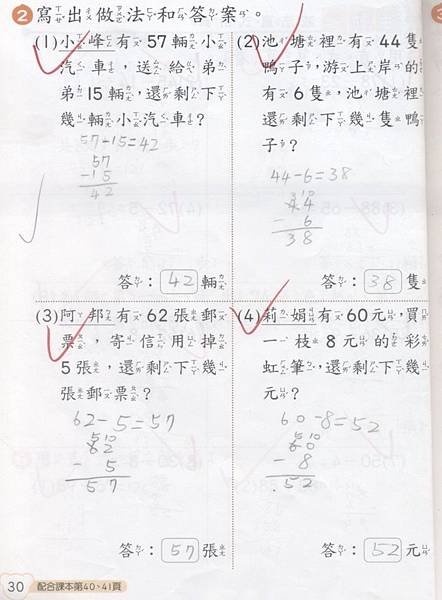 2 寫出做法和答案。
(1)小峰有57輛小
汽車，送給弟
弟15輛，還剩下
幾輛小汽車？
57-15=42
57
-15
42
答：42輛
(2)池塘裡有44隻
鴨子，游上岸的
有6隻，池塘裡
還剩下幾隻鴨
子？
44-6=38
3 10
44
- 6
38
答：38隻
(3)阿邦有62張郵
票，寄信用掉
5張，還剩下幾
張郵票？
62-5=57
5 10
62
- 5
57
答：57張
(4)莉娟有60元，買
一枝8元的彩
虹筆，還剩下幾
元？
60-8=52
5 10
60
- 8
52
答：52元
30 配合課本第40、41頁